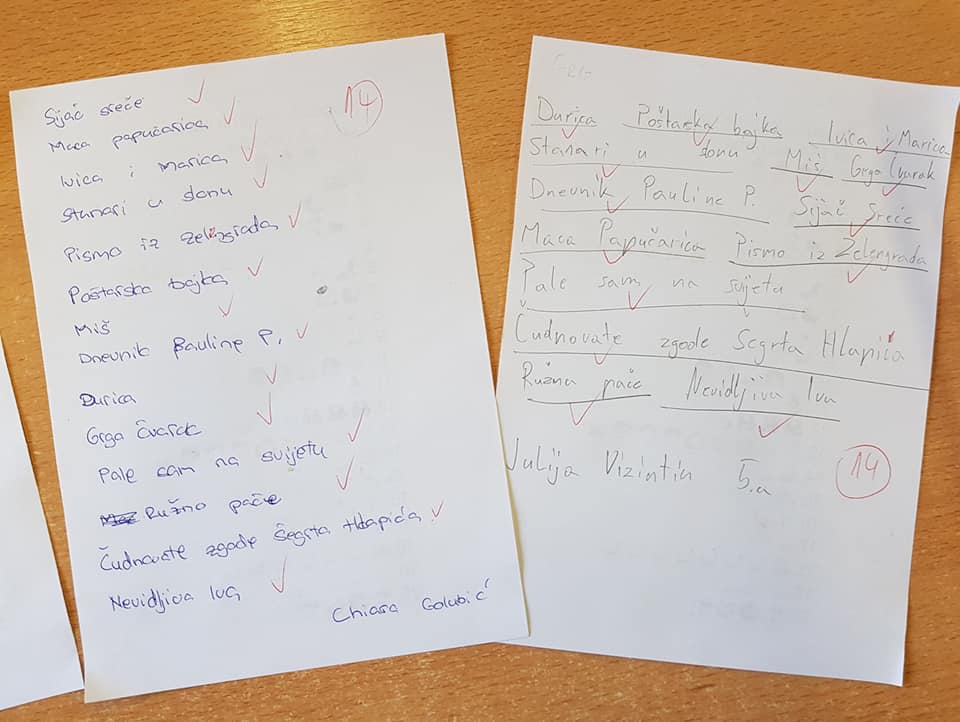 Sijač sreće
Maca papučarica
Ivica i Marica
Stanari u slonu
Pismo iz Zelengrada
Poštarska bajka
Miš
Dnevnik Pauline P.
Durica
Grga Čvarak
Pale sam na svijetu
Ružno pače
Čudnovate zgode Šegrta Hlapića
Nevidljiva Iva
Chiara Golubić
14
Durica Poštarska bajka Ivica i Marica
Stanari u slonu Miš Grga Čvarak
Dnevnik Pauline P. Sijač Sreće
Maca Papučarica Pismo iz Zelengrada
Pale sam na svijetu
Čudnovate zgode Šegrta Hlapića
Ružna pače Nevidljiva Iva
Julija Vizintin 5.a
14